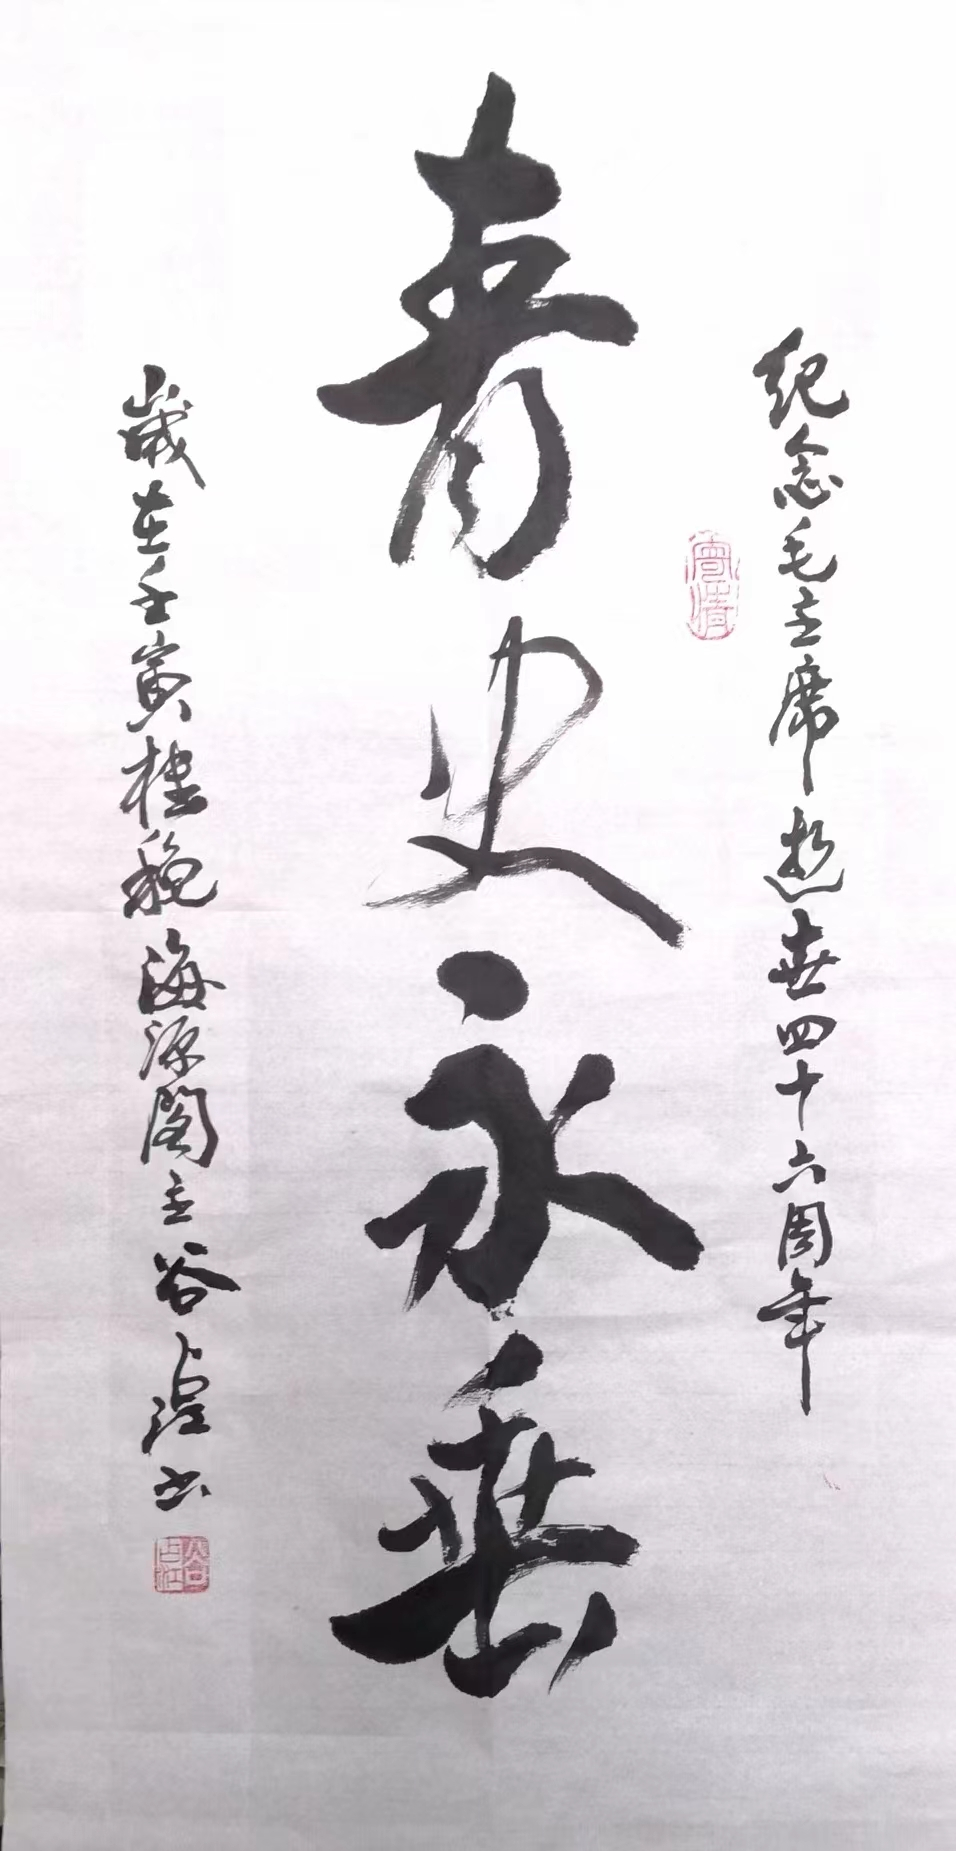 纪念毛主席逝世四十六周年
青史永垂
岁在壬寅桂秋海源阁主谷占江书